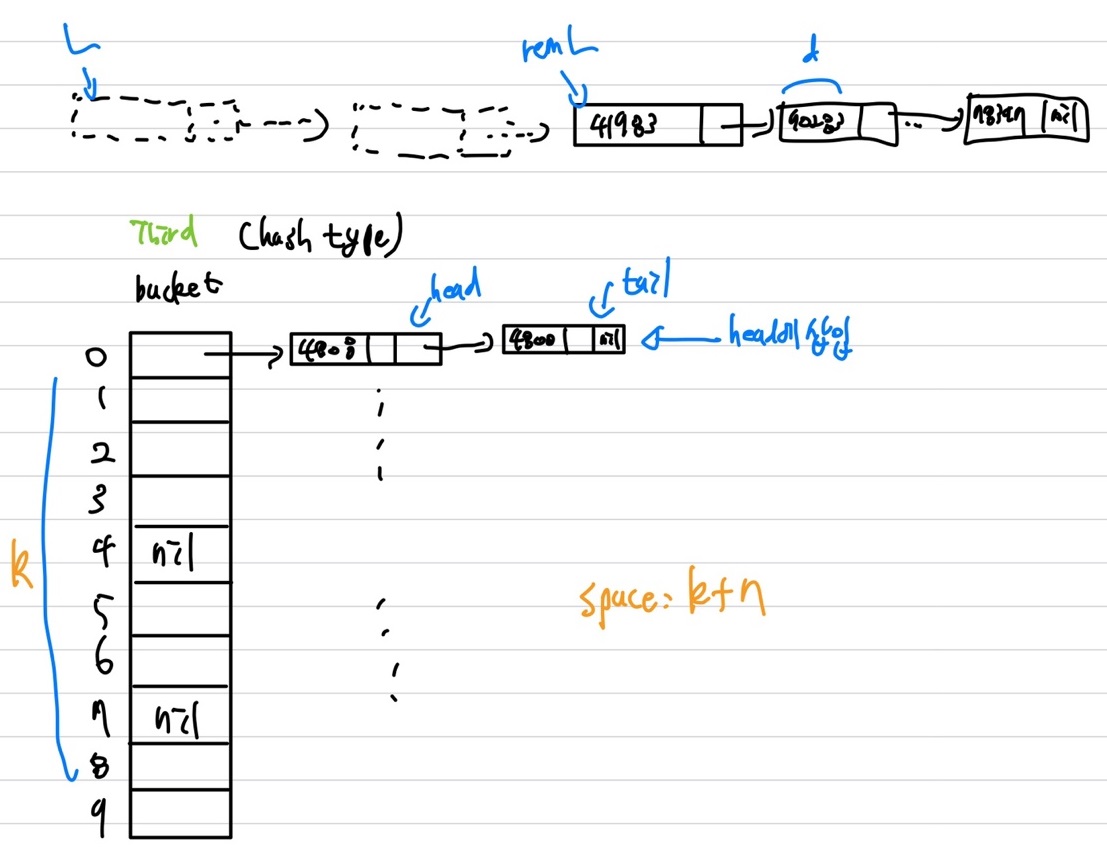 L
remL
d
41983
90283
...
nil
Third (hash type)
bucket
head
tail
4808
4800
nil
head에 삽입
0
1
2
3
4 nil
5
6
7 nil
8
9
k
space: k+n